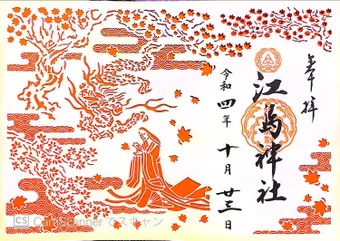 奉拝
江島神社
令和四年
十月廿三日
CS CamScanner でスキャン